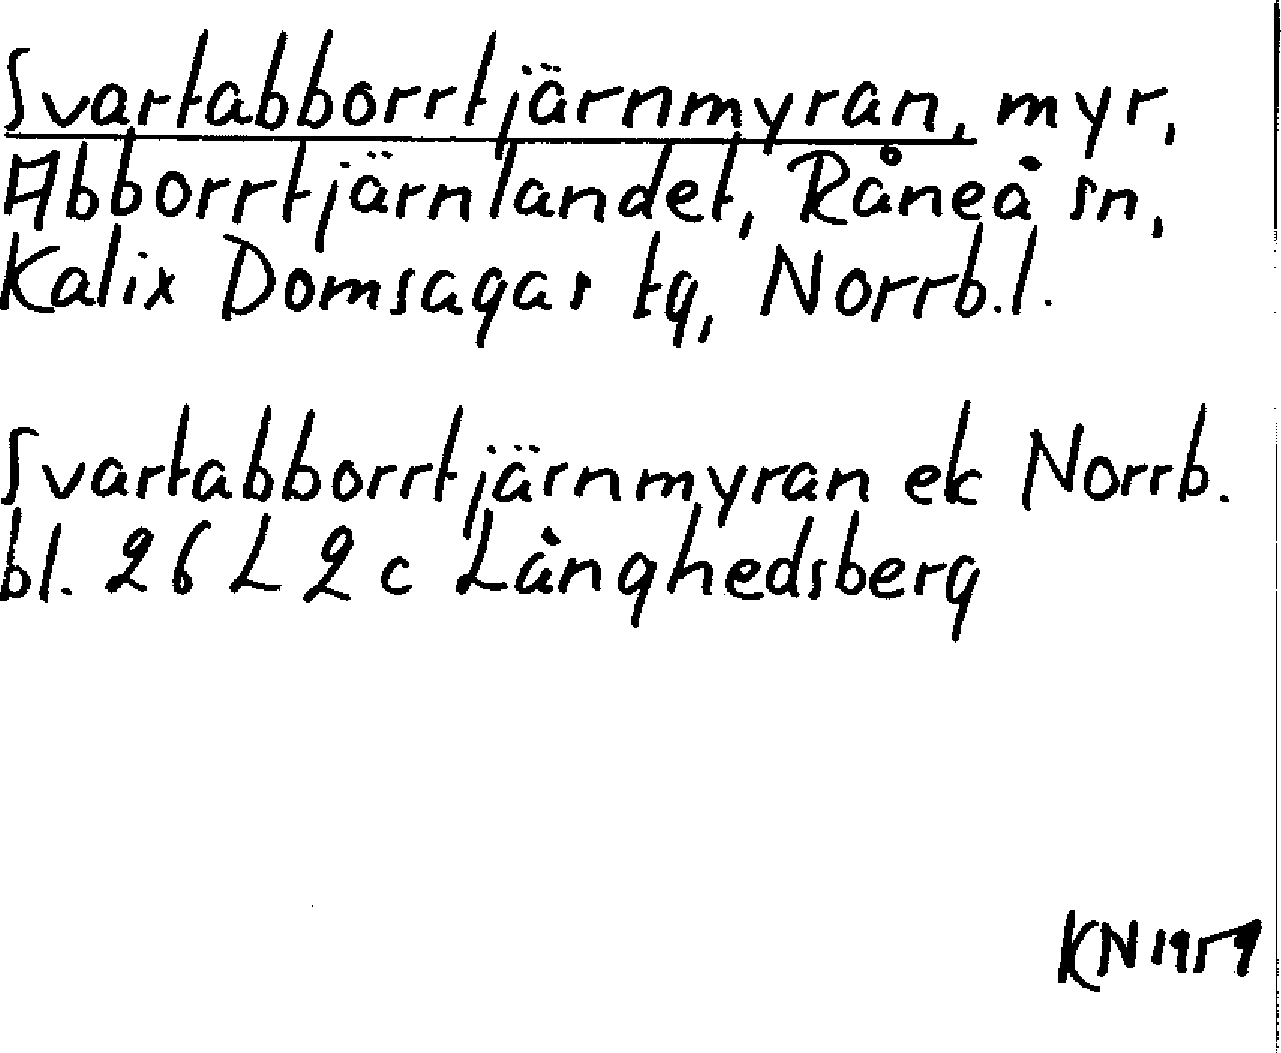 Svartabborrtjärnmyran, myr,
Abborrtjärnlandet, Råneå sn,
Kalix Domsagas tg, Norrb.l.
Svartabborrtjärnmyran ek Norrb.
bl. 26 L 2 c Långhedsberg
KN 1959